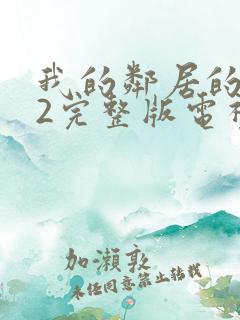 我的鄰居的
2完整版電視
加瀨敦
未任同意禁止轉載